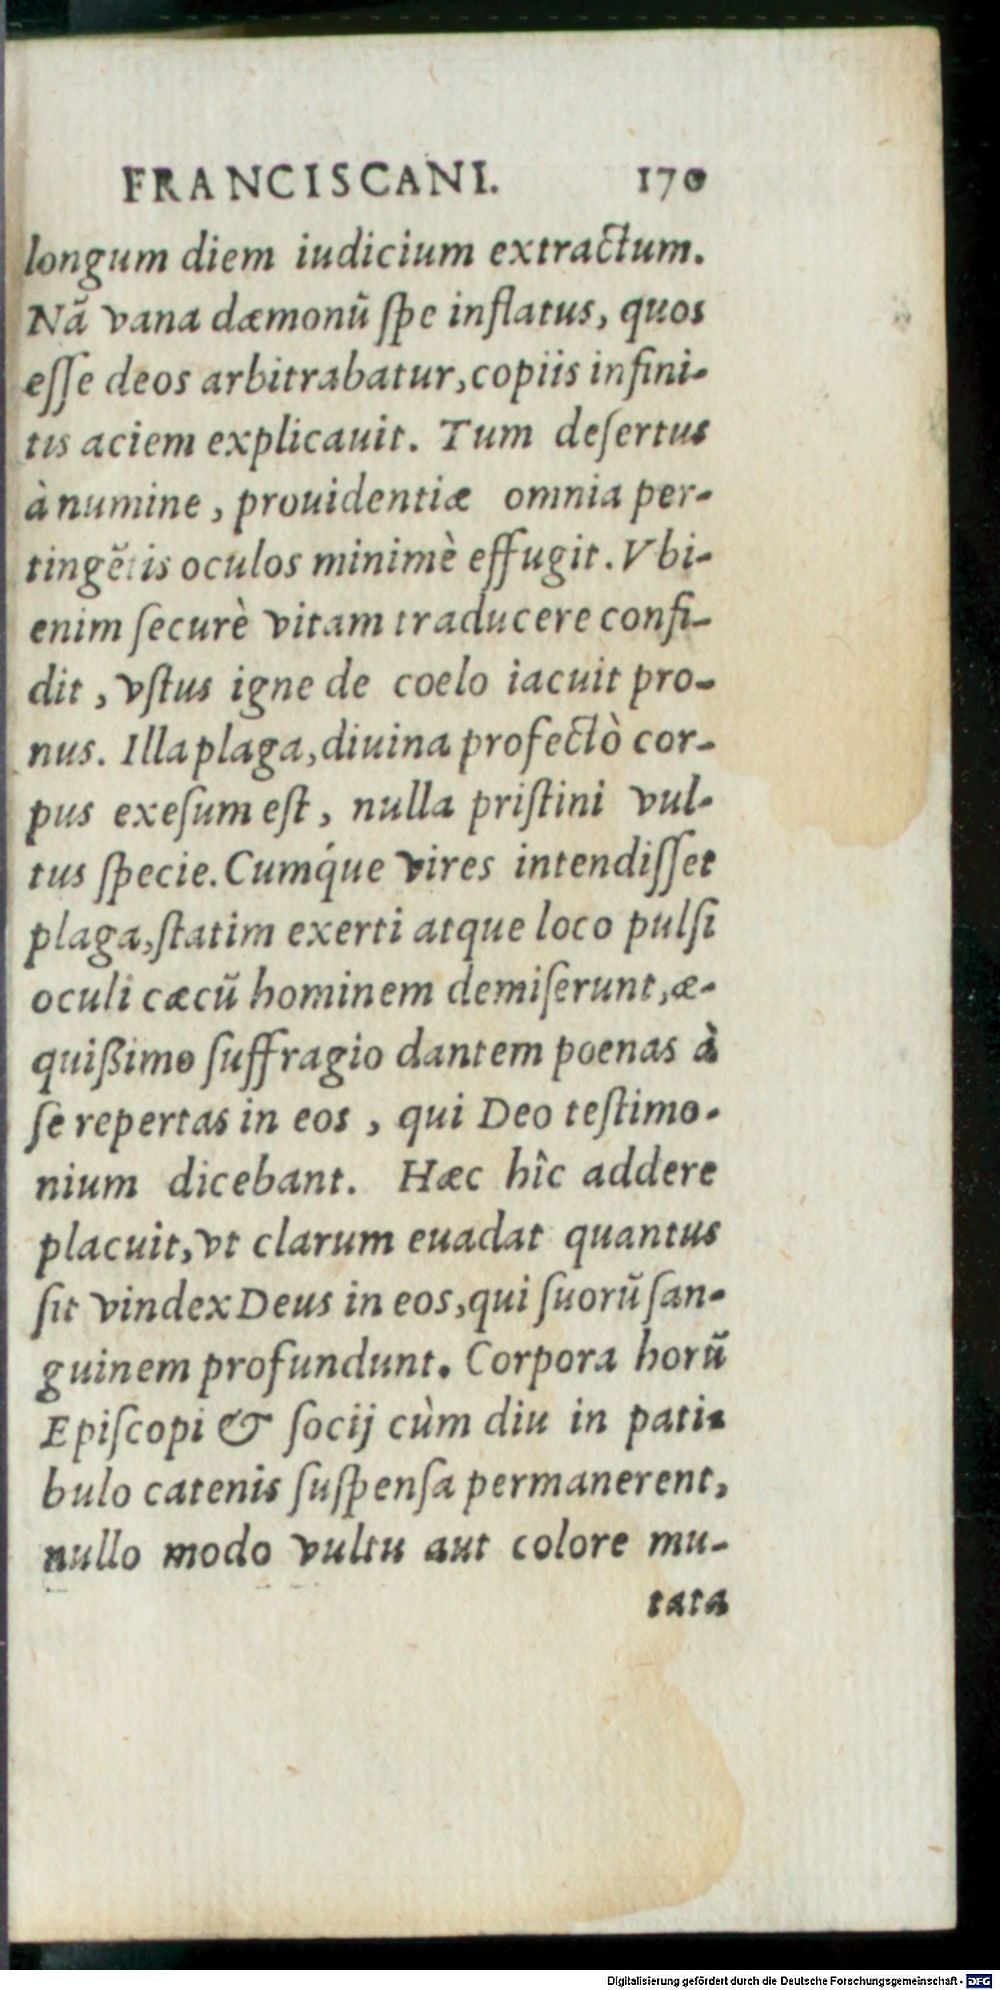 FRANCISCANI. 170
longum diem iudicium extractum.
Nã vana dæmonũ ſpe inflatus, quos
eſſe deos arbitrabatur, copiis infini-
tis aciem explicauit. Tum deſertus
à numine, prouidentiæ omnia per-
tingẽtis oculos minimè effugit. Vbi-
enim ſecurè vitam traducere confi-
dit, vſtus igne de coelo iacuit pro-
nus. Illa plaga, diuina profectò cor-
pus exeſum eſt, nulla priſtini vul-
tus ſpecie. Cumq́ue vires intendiſſet
plaga, ſtatim exerti atque loco pulſi
oculi cæcũ hominem demiſerunt, æ-
quißimo ſuffragio dantem poenas à
ſe repertas in eos, qui Deo teſtimo-
nium dicebant. Hæc hîc addere
placuit, vt clarum euadat quantus
ſit vindex Deus in eos, qui ſuorũ ſan-
guinem profundunt. Corpora horũ
Epiſcopi & ſocij cùm diu in pati-
bulo catenis ſuſpenſa permanerent,
nullo modo vultu aut colore mu-
tata
Digitalisierung gefördert durch die Deutsche Forschungsgemeinschaft - DFG